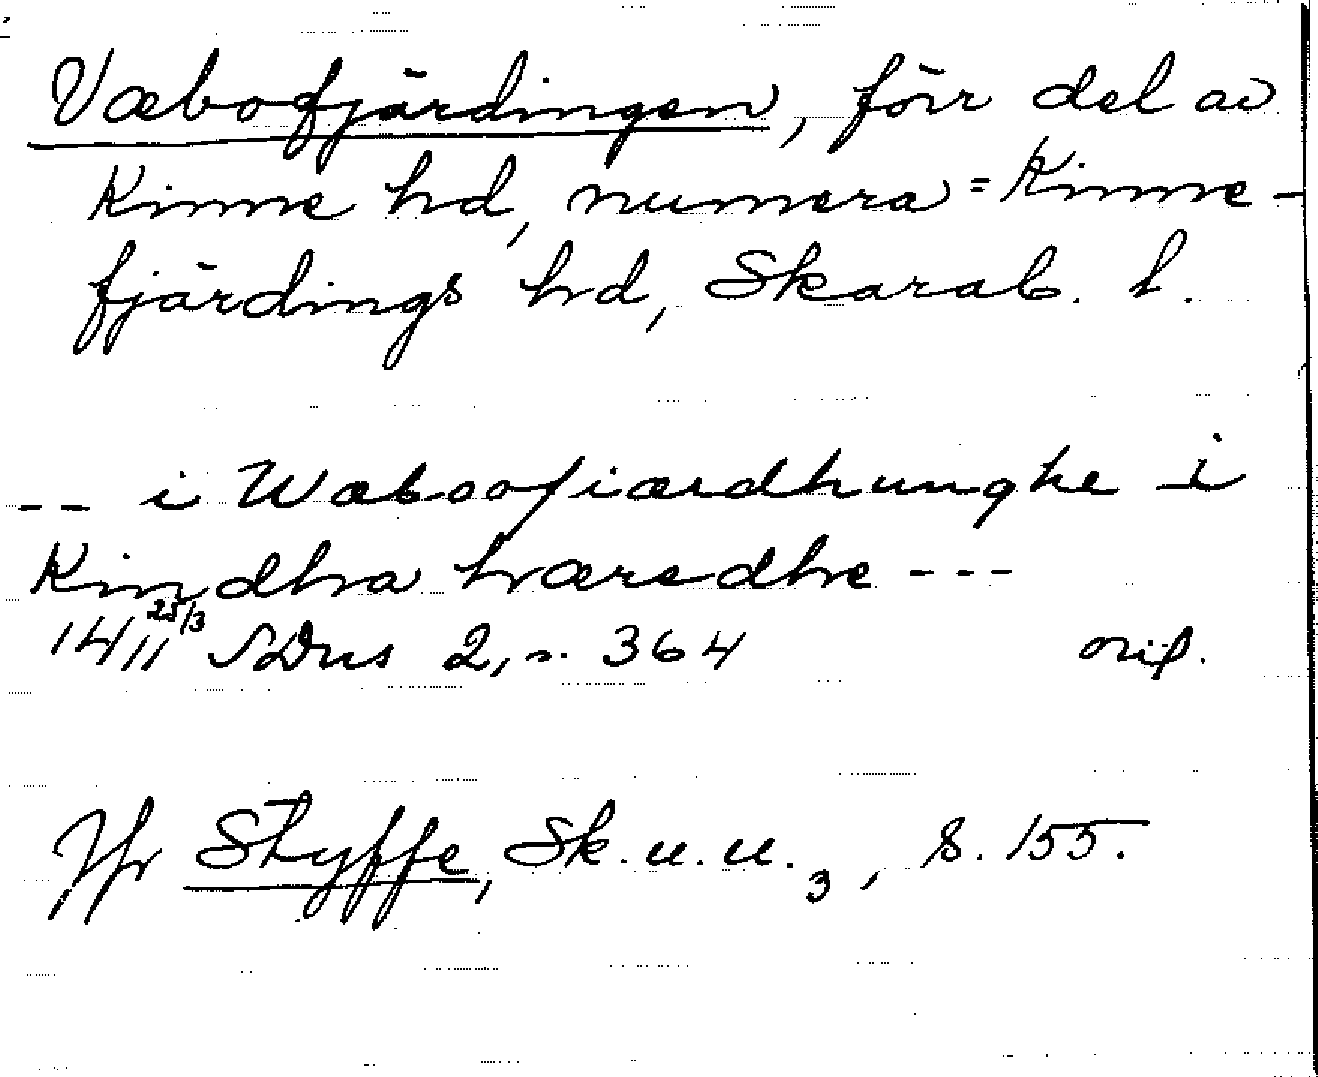 Væbofjärdingen, förr del av
Kinne hd, numera = Kinne-
fjärdings hd, Skarab. l.
-- i Wæboofiærdhunghe i
Kindha hæredhe ---
14/11 25/3 SDns 2, s. 364 orig.
Jfr Styffe, Sk.u.u. 3, s. 155.